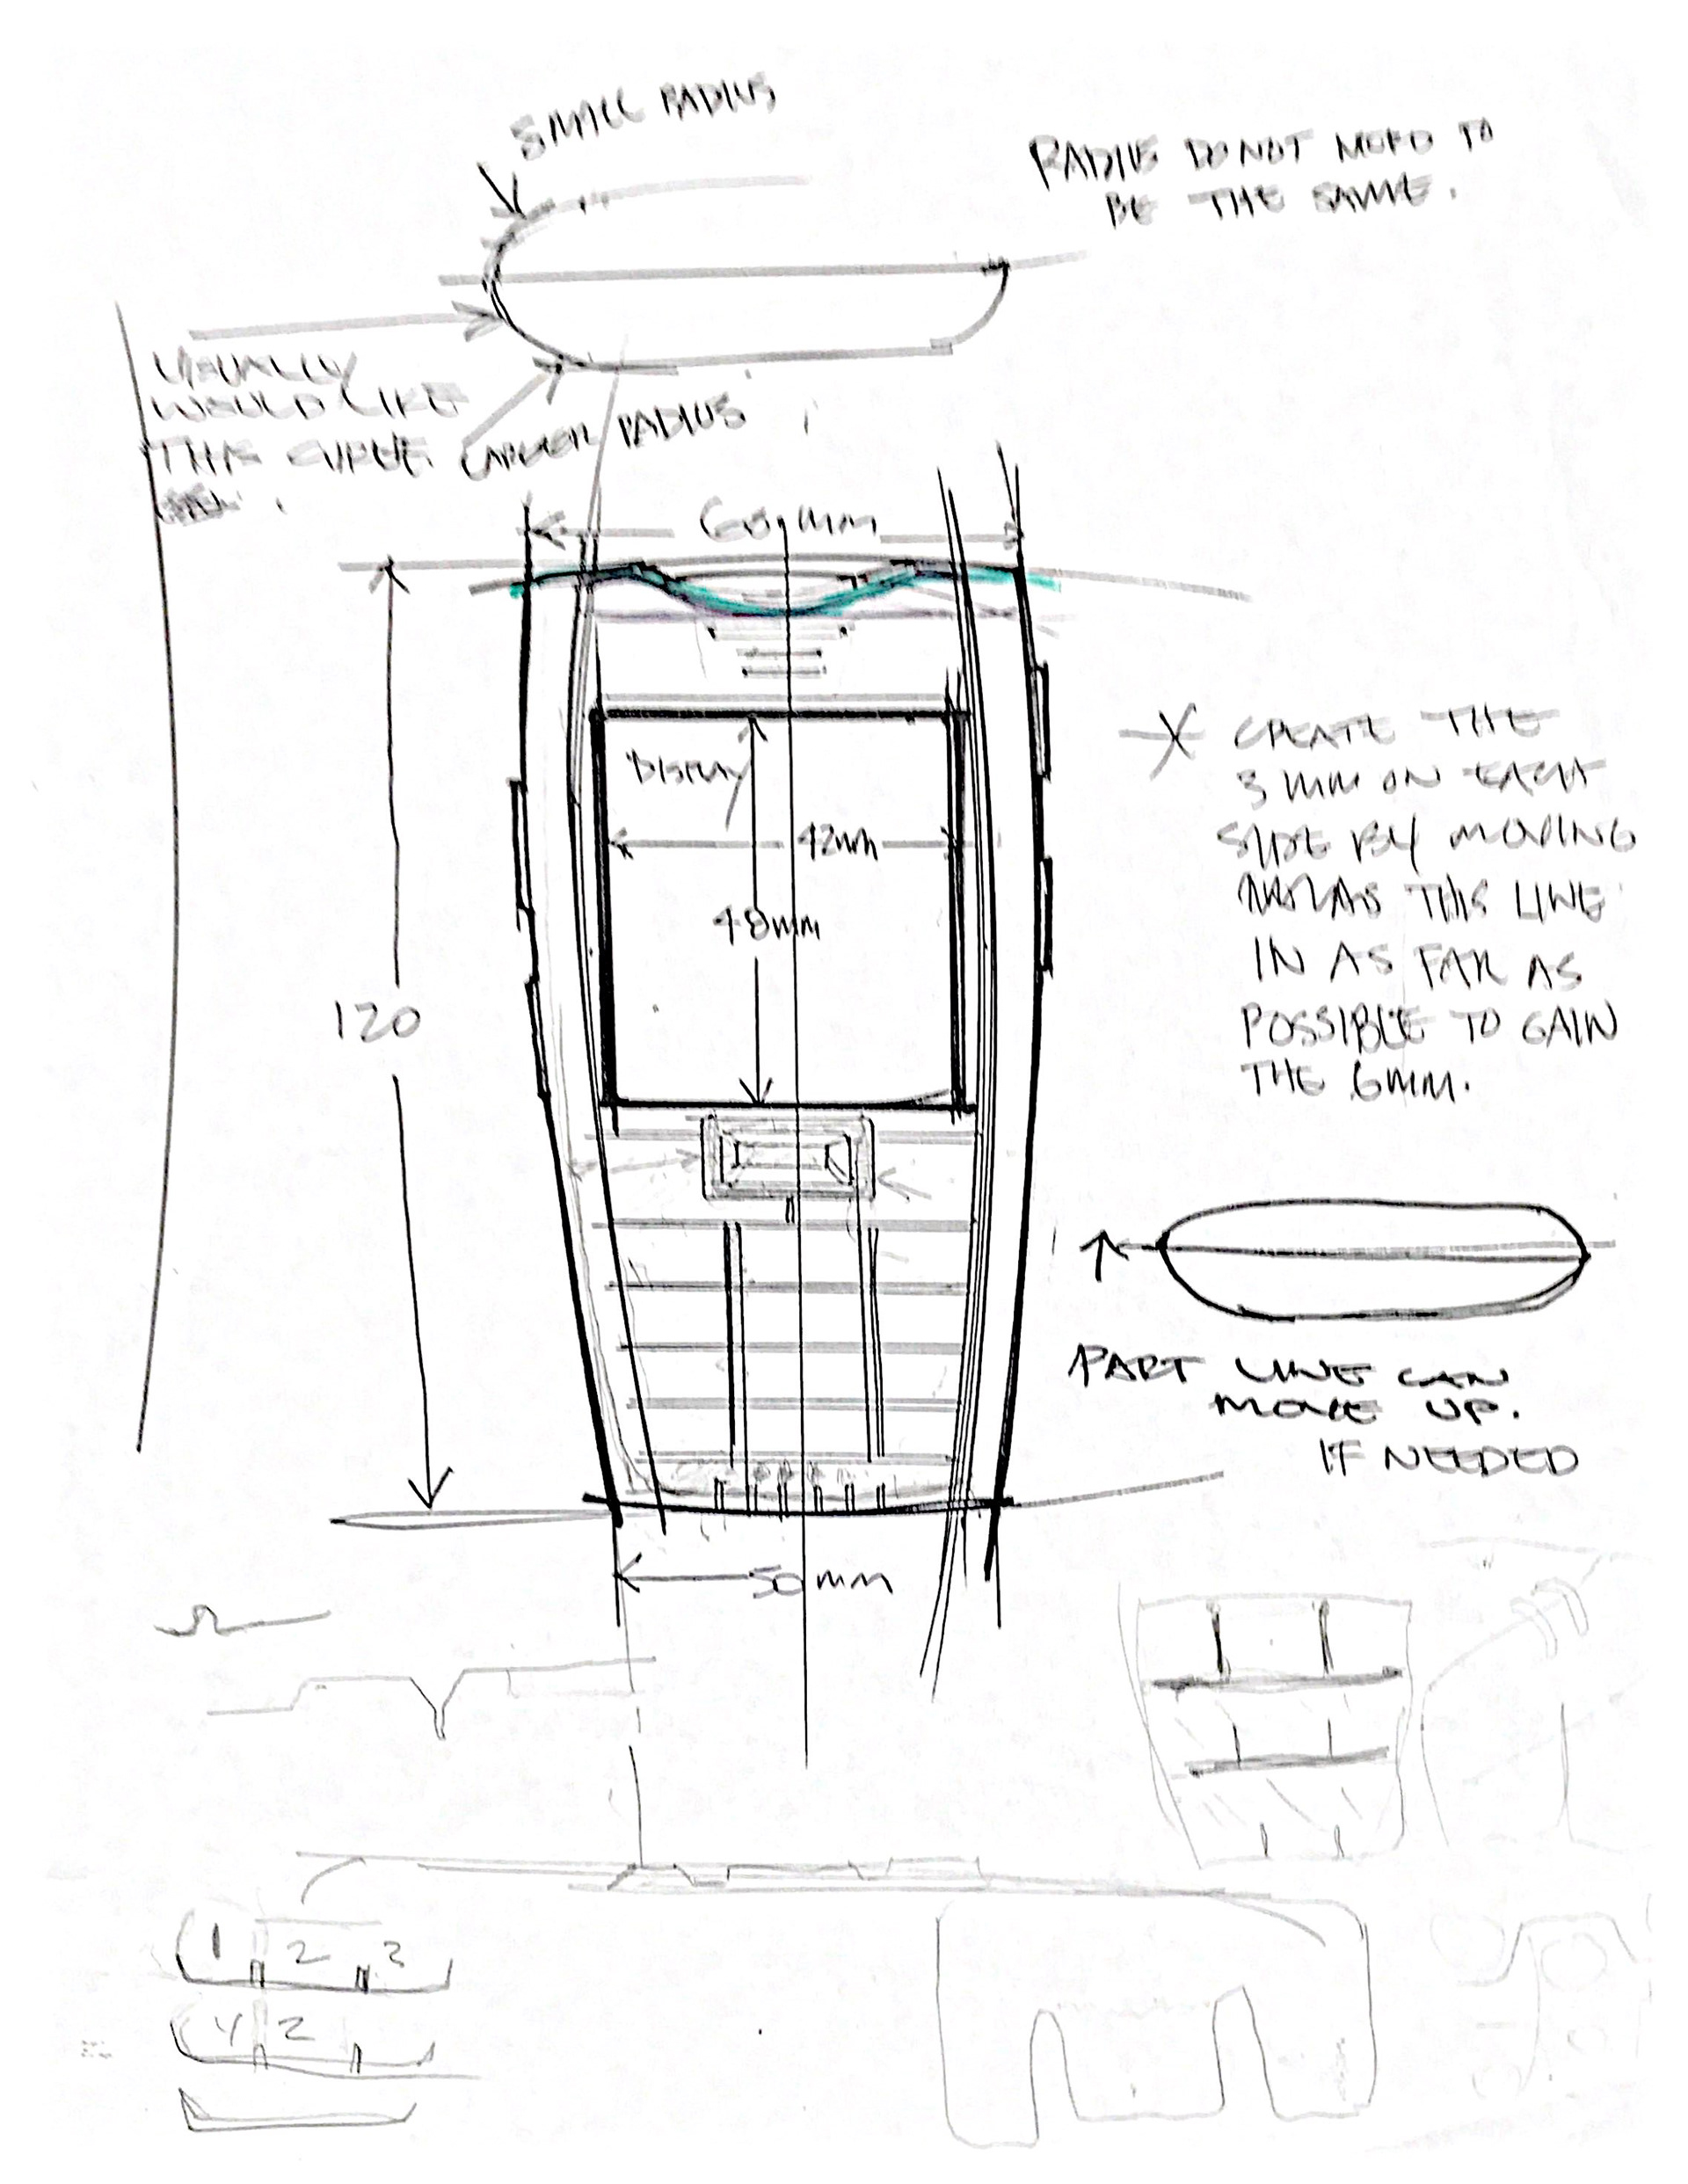 SMALL RADIUS
RADIUS DO NOT NEED TO
BE THE SAME.
USUALLY
WOULD LIKE
THIS CURVE
LARGER RADIUS
mm
DISPLAY
42mm
48mm
120
CREATE THE
3 MM ON EACH
SIDE BY MOVING
AS THIS LINE
IN AS FAR AS
POSSIBLE TO GAIN
THE 6MM.
PART LINE CAN
MOVE UP.
IF NEEDED
50 mm
1 2 3
4 2